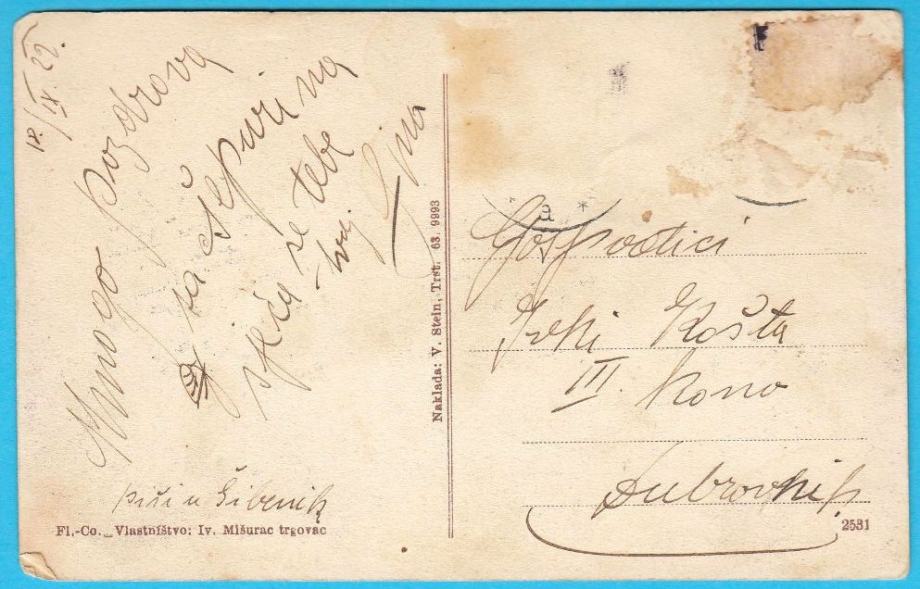 18./IX. 22.
Mnogo pozdrava
sa
sjeća se tebe
tvoj
piši u Šibenik
Fl.-Co. Vlastništvo: Iv. Mišurac trgovac
Naklada: V. Stein, Trst. 63. 9993
* a *
Gospodici
Košta
III. Kono
Dubrovnik
2531